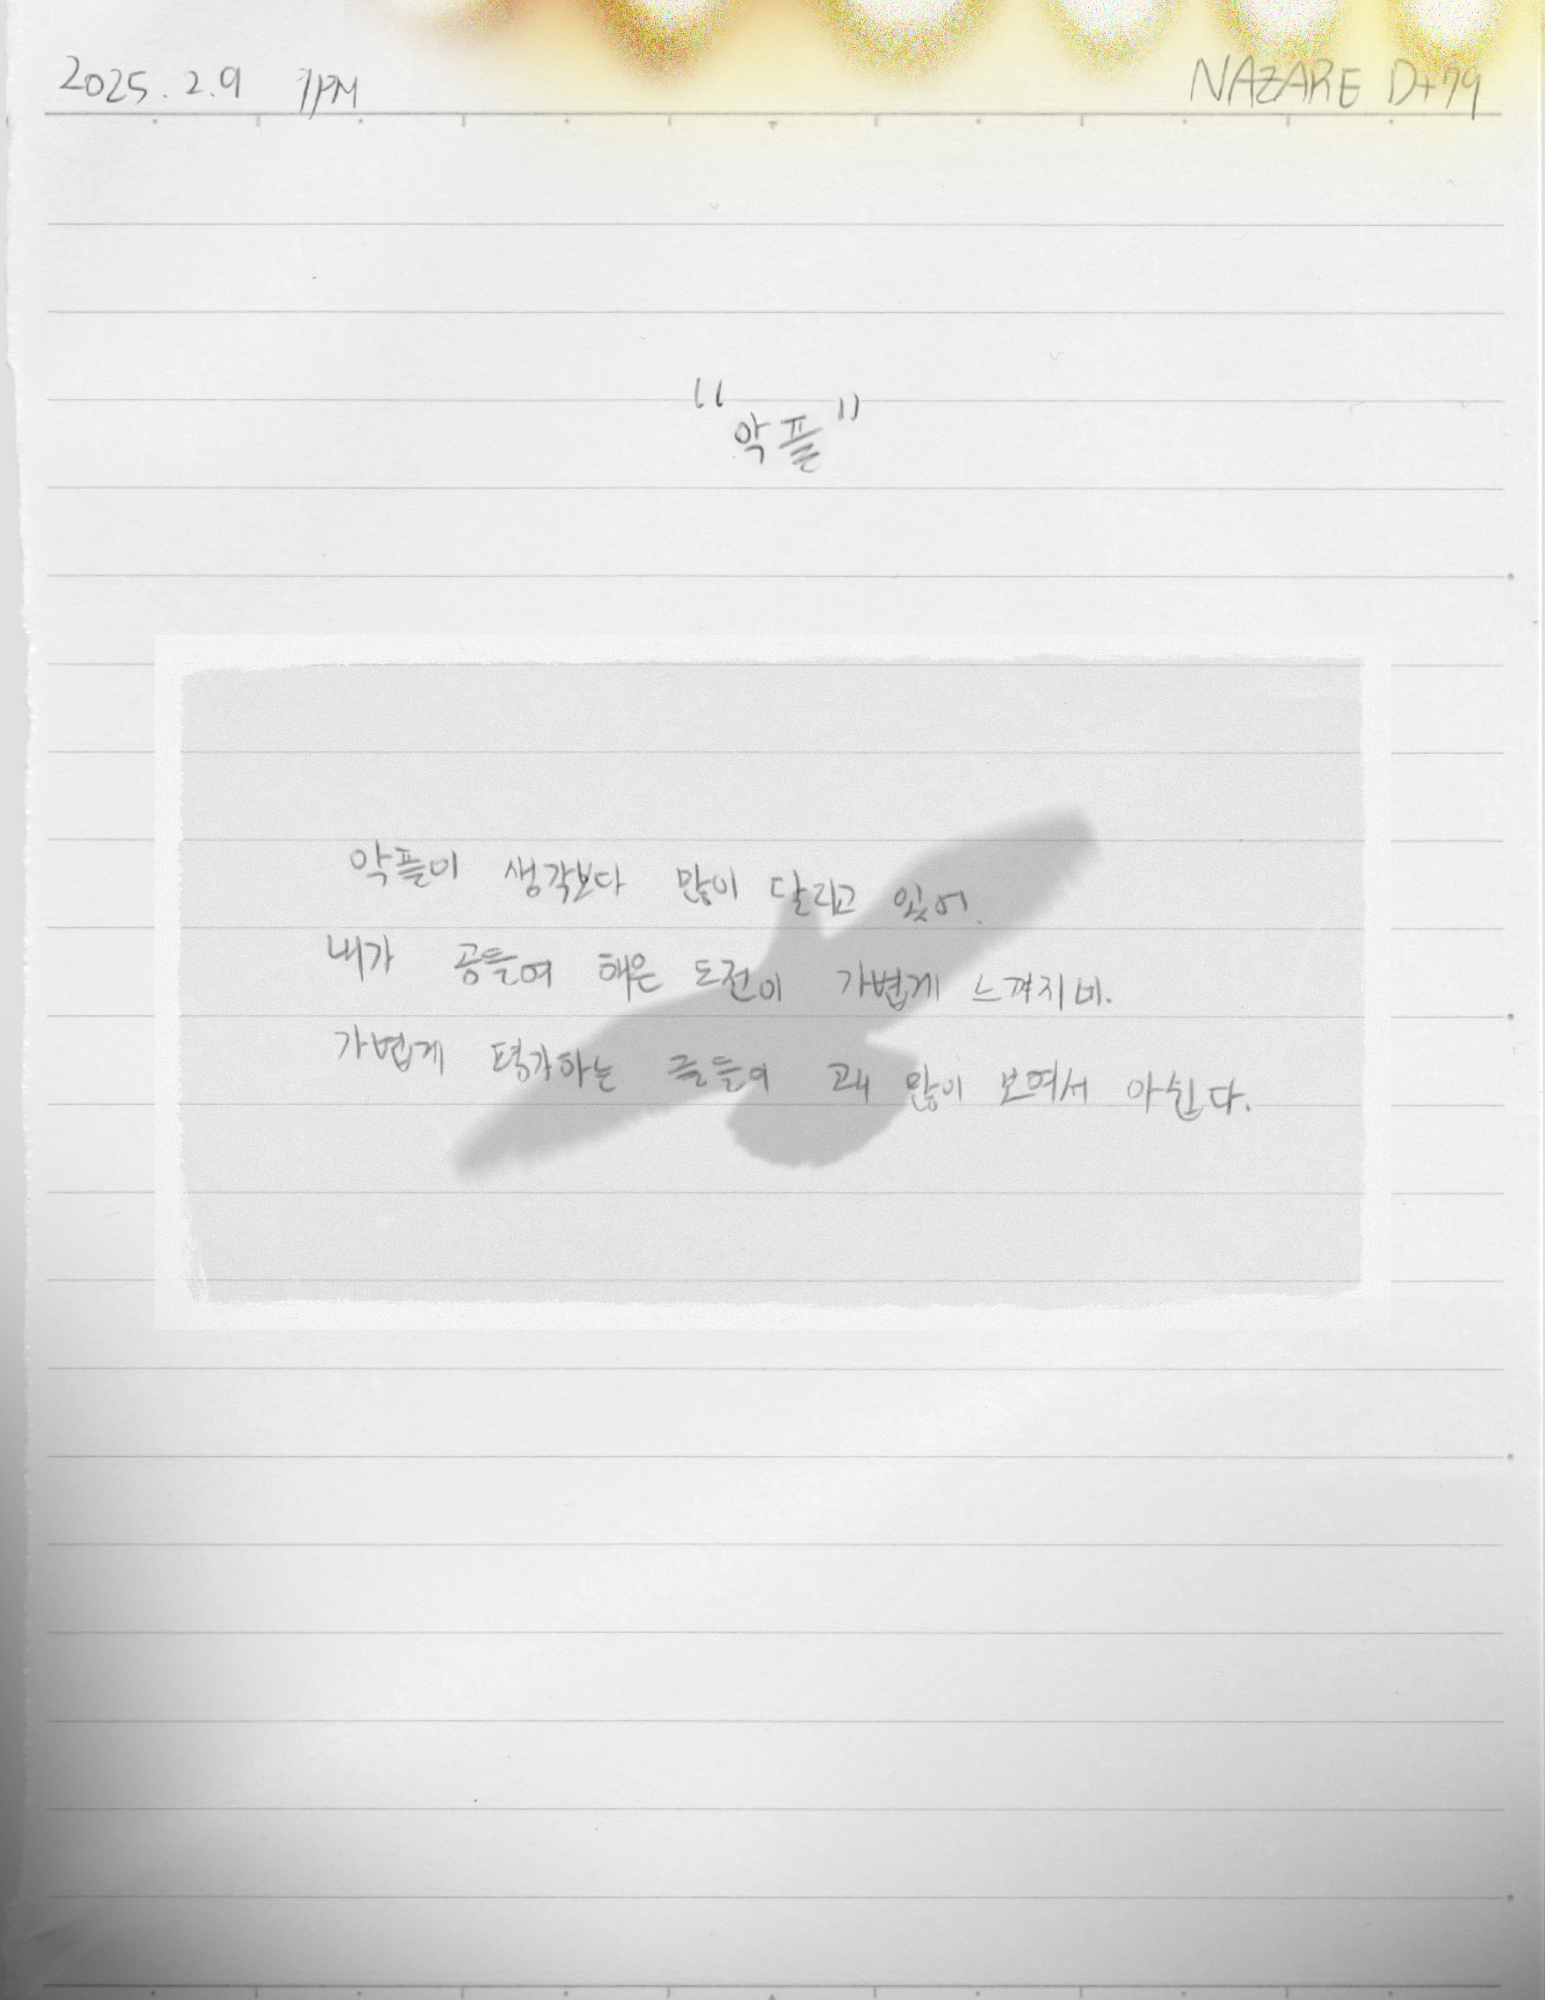 2025. 2.9 7PM
NAZARE D+79
"악플"
악플이 생각보다 많이 달리고 있어.
내가 공들여 해온 도전이 가볍게 느껴지네.
가볍게 평가하는 글들이 꽤 많이 보여서 아쉽다.